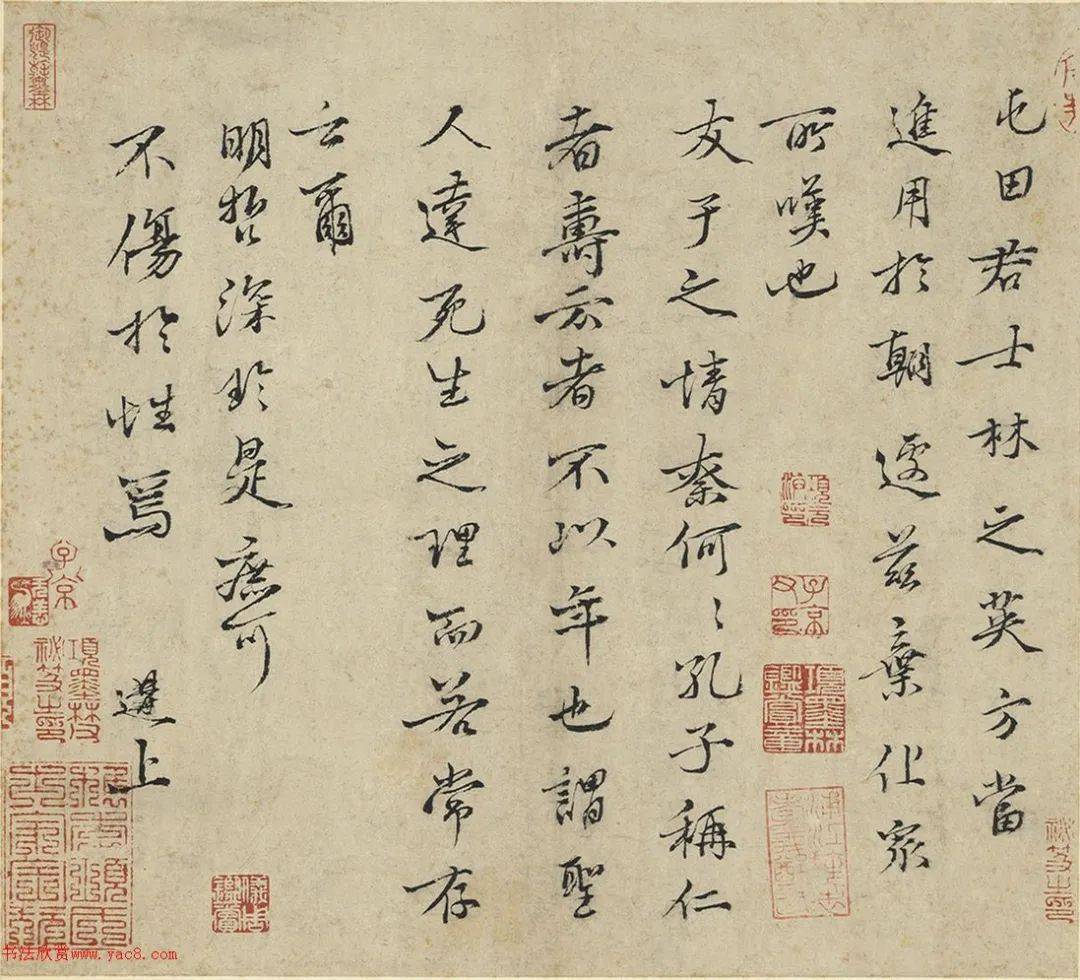 屯田君士林之英方當
進用於朝遽茲棄代衆
所嘆也
友于之情柰何〻孔子稱仁
者壽云者不以年也謂聖
人達死生之理而若常存
云爾
明哲深於是庶可
不傷於性焉 遘上
子京
項墨林秘笈之印
書法欣赏www.yac8.com